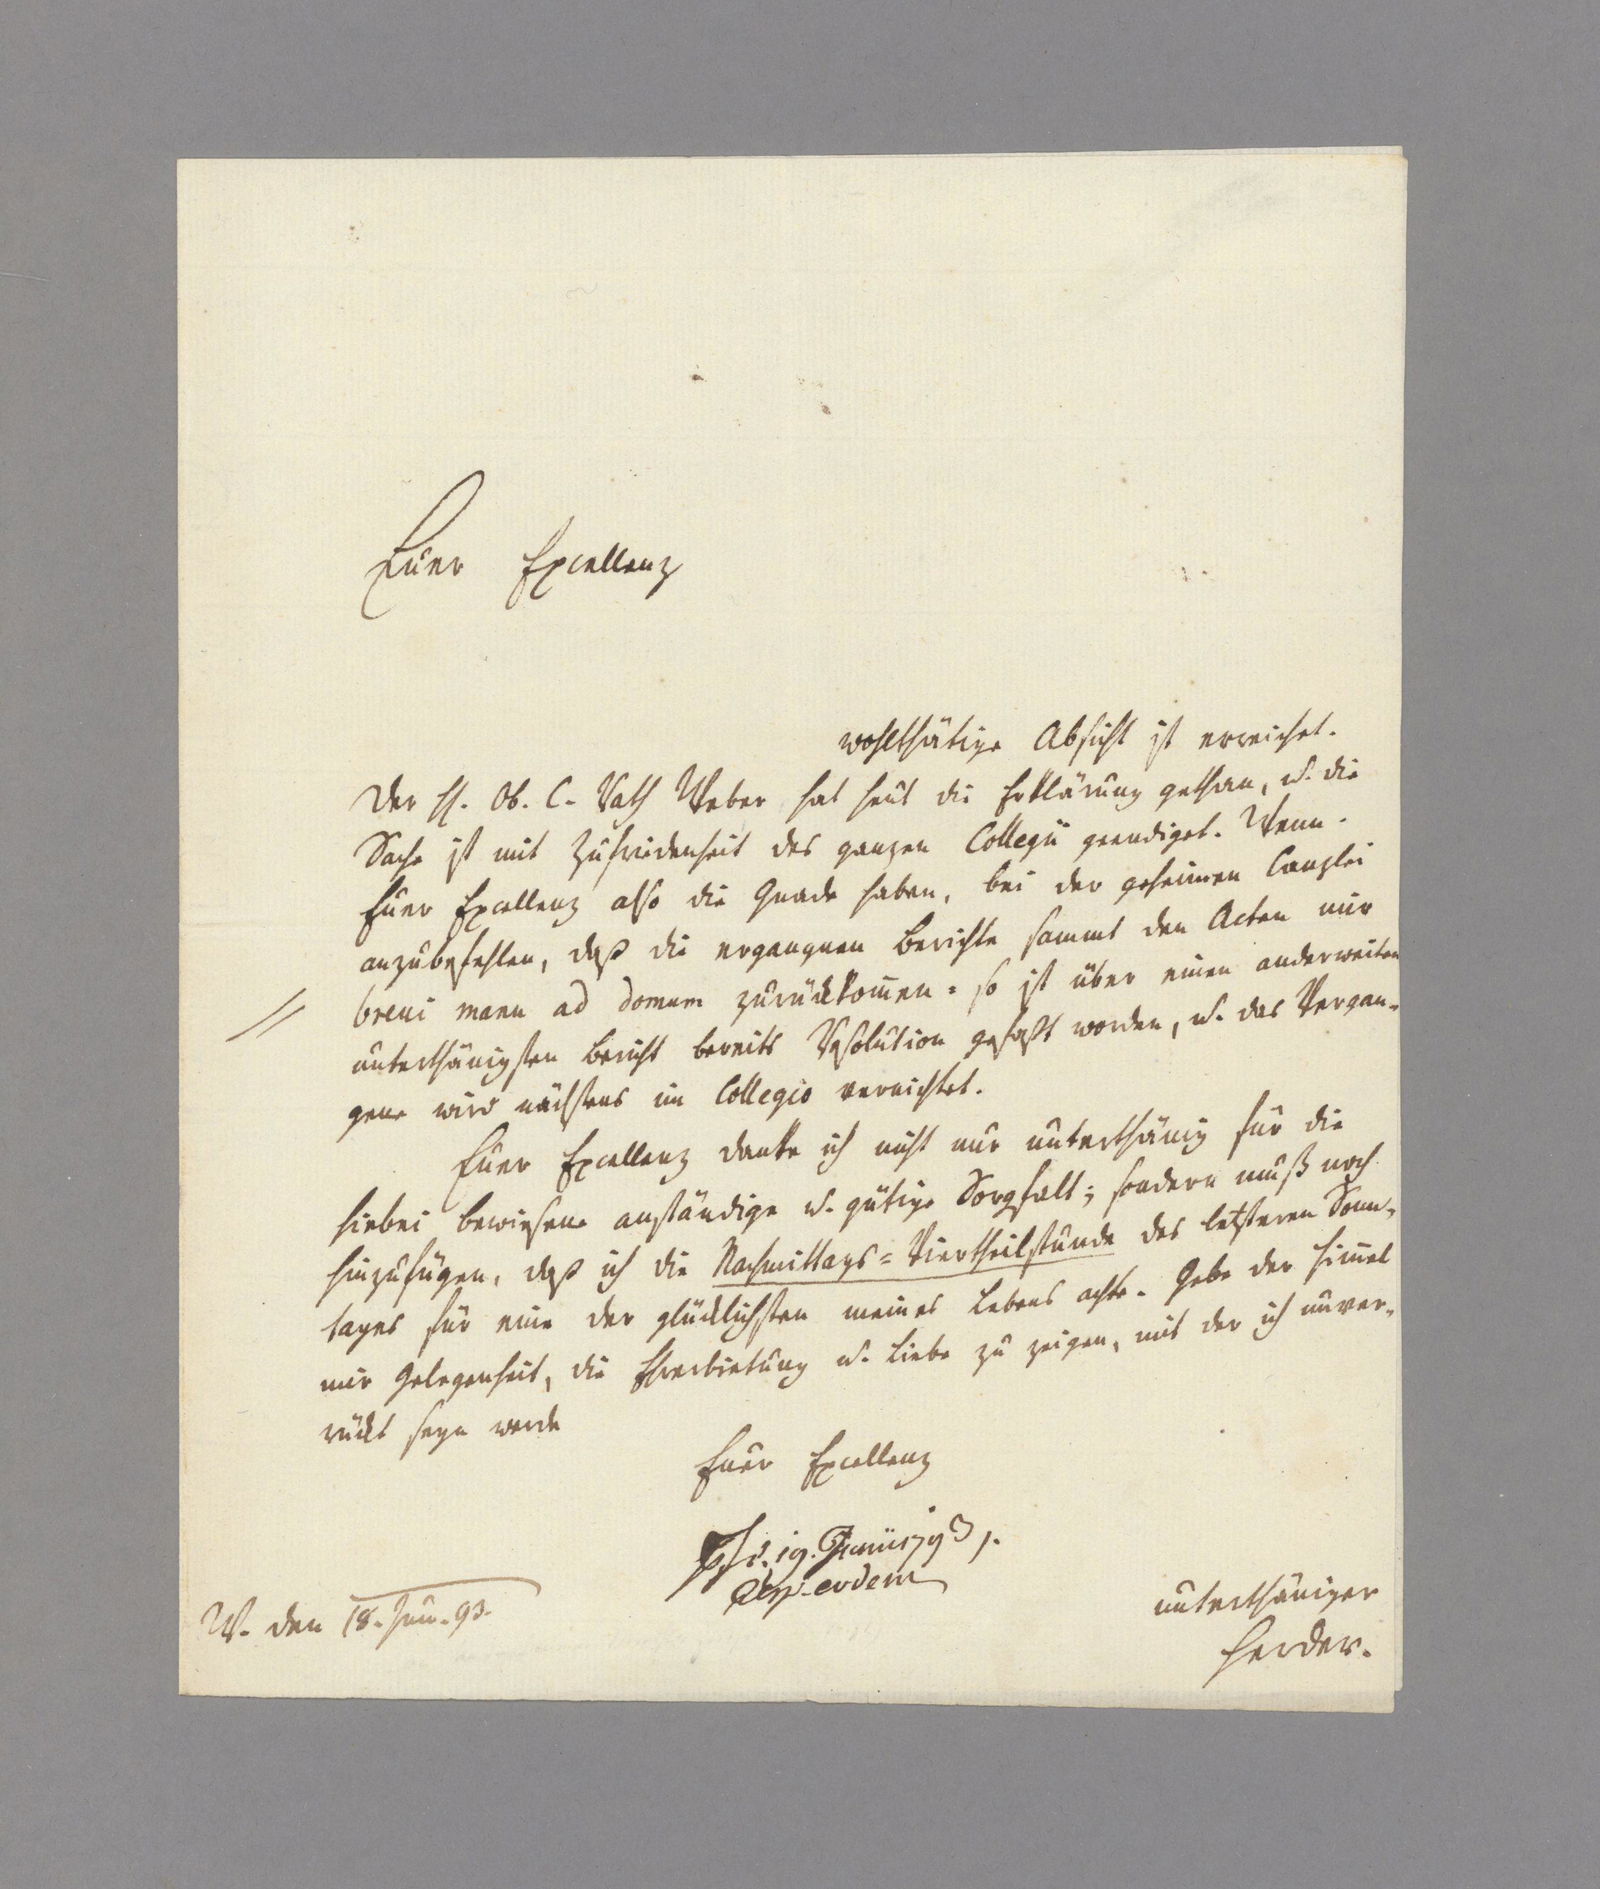 Euer Excellenz
wohlthätige Absicht ist erreichet.
Der H. Ob. C. Rath Weber hat heut die Erklärung gethan, u. die
Sache ist mit Zufriedenheit des ganzen Collegii geendiget. Wenn
Euer Excellenz also die Gnade haben, bei der geheimen Canzlei
anzubefehlen, daß die ergangnen Berichte sammt den Acten nur
brevi manu ad domum zurückkom̄en: so ist über einen anderweiten
unterthänigsten Bericht bereits Resolution gefaßt worden, u. das Vergan-
gene wird nächstens im Collegio vernichtet.
Euer Excellenz danke ich nicht nur unterthänig für die
hiebei bewiesene anständige u. gütige Sorgfalt; sondern muß noch
hinzufügen, daß ich die Nachmittags-Viertheilstunde des letzteren Sonn-
tages für eine der glücklichsten meines Lebens achte. Gebe der Him̄el
mir Gelegenheit, die Ehrerbietung u. Liebe zu zeigen, mit der ich unver-
rückt seyn werde
Euer Excellenz
eodem
W. den 18. Jun. 93.
unterthäniger
Herder.